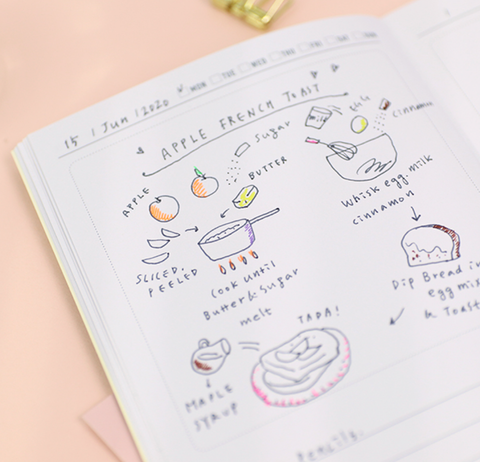 MON TUE WED THU FRI SAT SUN
15 / Jun / 2020
APPLE FRENCH TOAST
Sugar
BUTTER
APPLE
SLICED,
PEELED
Cook until
Butter & Sugar
melt
milk
Egg
Cinnamon
Whisk egg, milk
cinnamon
Dip Bread in
egg mix
& Toast
TADA!
MAPLE
SYRUP
Pencils.